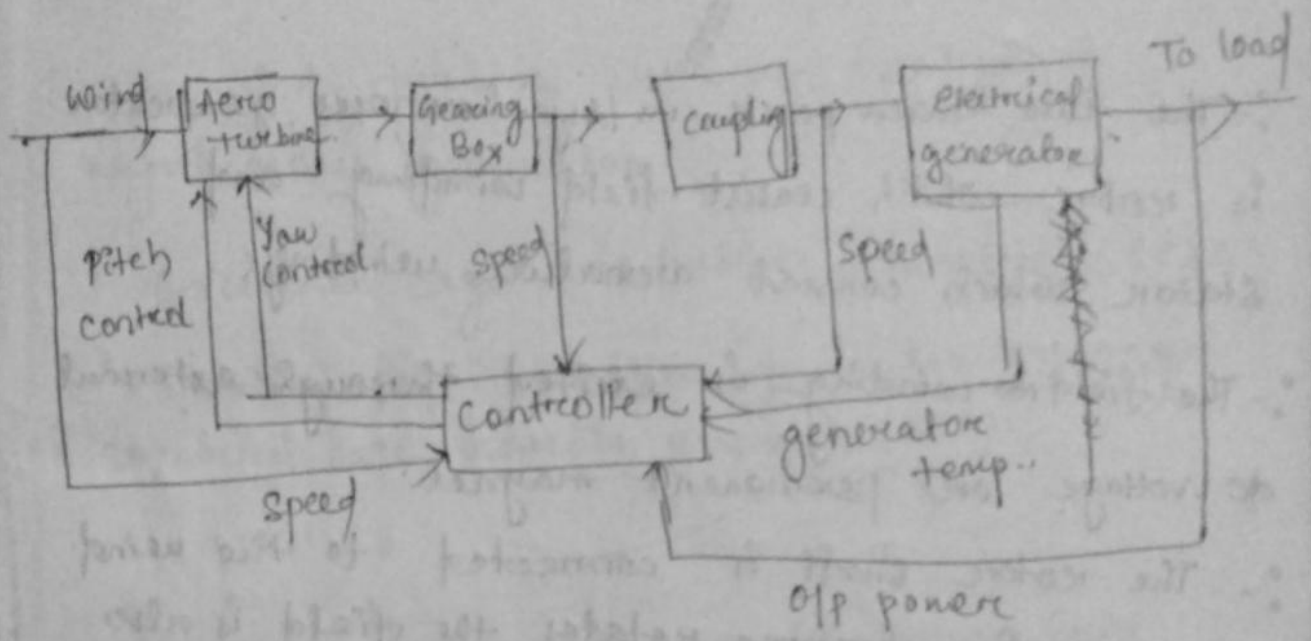 To load
wind
Aero
turbine
Gearing
Box
Coupling
electrical
generator
Pitch
control
Yaw
control
speed
speed
Controller
generator
temp..
speed
O/p power